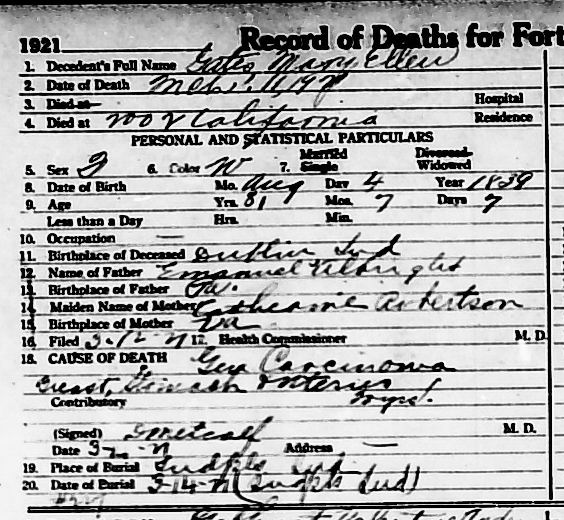 1921 Record of Deaths for Fort
1. Decedent's Full Name Gates, Mary Ellen
2. Date of Death Mch. 11, 1921
3. Died at Hospital
4. Died at 2002 California Residence
PERSONAL AND STATISTICAL PARTICULARS
5. Sex F 6. Color W 7. Married Single Divorced Widowed
8. Date of Birth Mo. Aug Day 4 Year 1839
9. Age Yrs. 81 Mos. 7 Days 7
Less than a Day Hrs. Min.
10. Occupation —
11. Birthplace of Deceased Dublin Ind
12. Name of Father Emanuel Albright
13. Birthplace of Father
14. Maiden Name of Mother Catherine Robertson
15. Birthplace of Mother Va
16. Filed 3-12-21 17. Health Commissioner M. D.
18. CAUSE OF DEATH Gen Carcinoma
Breast, Stomach
Contributory
(Signed) Metcalf M. D.
Date Address —
19. Place of Burial Indpls Ind
20. Date of Burial 3-14-21 (Indpls Ind)